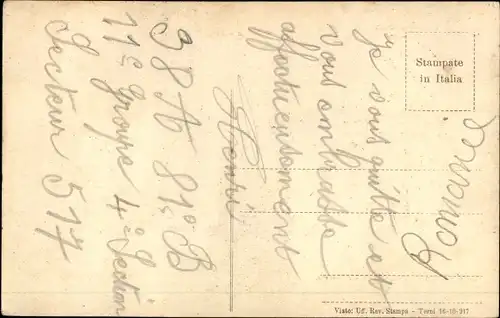 Stampate
in Italia
Je vous quitte et
vous embrasse
affectueusement
Henri
38 A 81º B
11e Groupe 4e Section
Secteur 517
Visto: Uff. Rev. Stampa - Terni 16-10-917